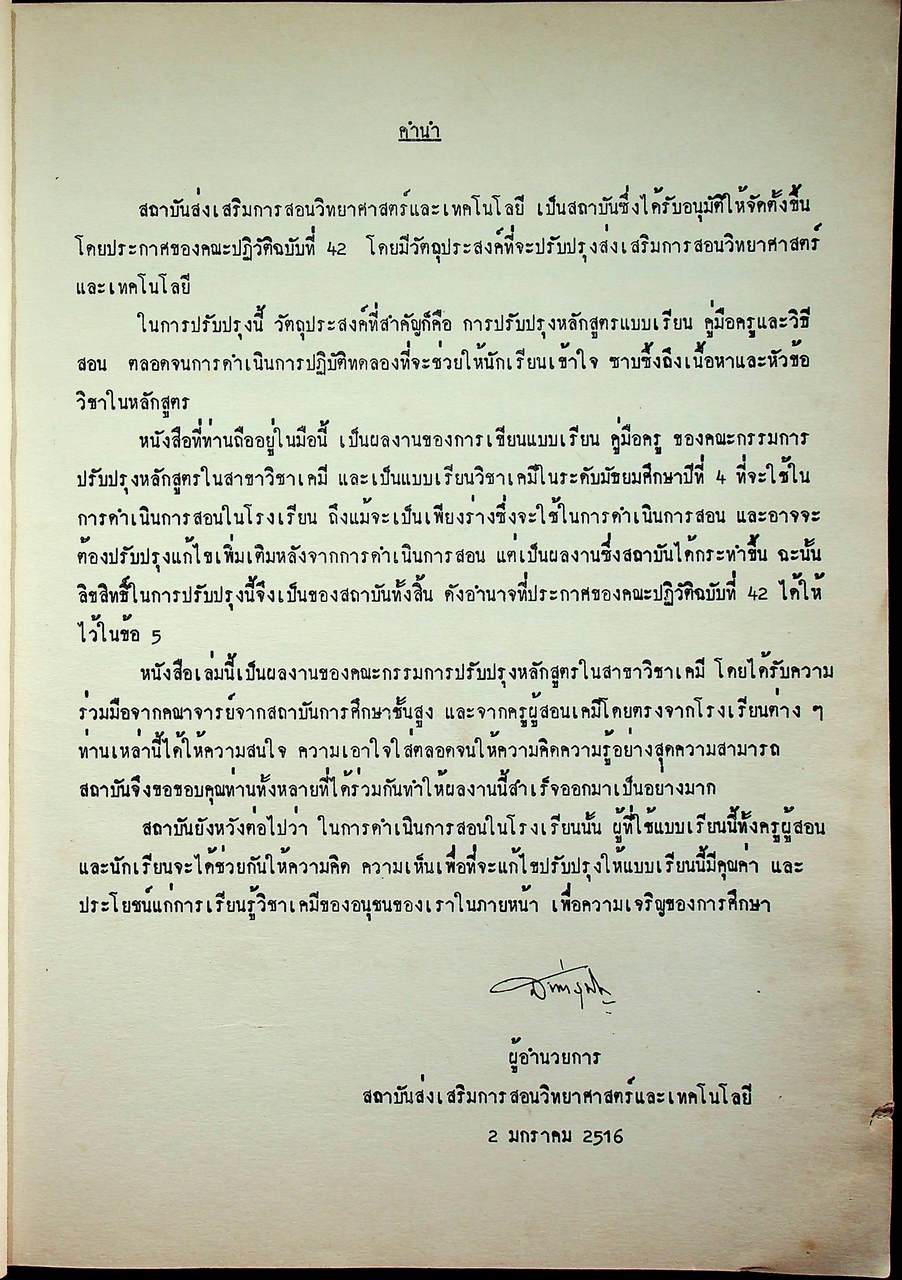 คำนำ
สถาบันส่งเสริมการสอนวิทยาศาสตร์และเทคโนโลยี เป็นสถาบันซึ่งได้รับอนุมัติให้จัดตั้งขึ้น
โดยประกาศของคณะปฏิวัติฉบับที่ 42 โดยมีวัตถุประสงค์ที่จะปรับปรุงส่งเสริมการสอนวิทยาศาสตร์
และเทคโนโลยี
ในการปรับปรุงนี้ วัตถุประสงค์ที่สำคัญก็คือ การปรับปรุงหลักสูตรแบบเรียน คู่มือครูและวิธี
สอน ตลอดจนการดำเนินการปฏิบัติทดลองที่จะช่วยให้นักเรียนเข้าใจ ซาบซึ้งถึงเนื้อหาและหัวข้อ
วิชาในหลักสูตร
หนังสือที่ท่านถืออยู่ในมือนี้ เป็นผลงานของการเขียนแบบเรียน คู่มือครู ของคณะกรรมการ
ปรับปรุงหลักสูตรในสาขาวิชาเคมี และเป็นแบบเรียนวิชาเคมีในระดับมัธยมศึกษาปีที่ 4 ที่จะใช้ใน
การดำเนินการสอนในโรงเรียน ถึงแม้จะเป็นเพียงร่างซึ่งจะใช้ในการดำเนินการสอน และอาจจะ
ต้องปรับปรุงแก้ไขเพิ่มเติมหลังจากการดำเนินการสอน แต่เป็นผลงานซึ่งสถาบันได้กระทำขึ้น ฉะนั้น
ลิขสิทธิ์ในการปรับปรุงนี้จึงเป็นของสถาบันทั้งสิ้น ดังอำนาจที่ประกาศของคณะปฏิวัติฉบับที่ 42 ได้ให้
ไว้ในข้อ 5
หนังสือเล่มนี้เป็นผลงานของคณะกรรมการปรับปรุงหลักสูตรในสาขาวิชาเคมี โดยได้รับความ
ร่วมมือจากคณาจารย์จากสถาบันการศึกษาชั้นสูง และจากครูผู้สอนเคมีโดยตรงจากโรงเรียนต่าง ๆ
ท่านเหล่านี้ได้ให้ความสนใจ ความเอาใจใส่ตลอดจนให้ความคิดความรู้อย่างสุดความสามารถ
สถาบันจึงขอขอบคุณท่านทั้งหลายที่ได้ร่วมกันทำให้ผลงานนี้สำเร็จออกมาเป็นอยางมาก
สถาบันยังหวังต่อไปว่า ในการดำเนินการสอนในโรงเรียนนั้น ผู้ที่ใช้แบบเรียนนี้ทั้งครูผู้สอน
และนักเรียนจะได้ช่วยกันให้ความคิด ความเห็นเพื่อที่จะแก้ไขปรับปรุงให้แบบเรียนนี้มีคุณค่า และ
ประโยชน์แก่การเรียนรู้วิชาเคมีของอนุชนของเราในภายหน้า เพื่อความเจริญของการศึกษา
ผู้อำนวยการ
สถาบันส่งเสริมการสอนวิทยาศาสตร์และเทคโนโลยี
2 มกราคม 2516